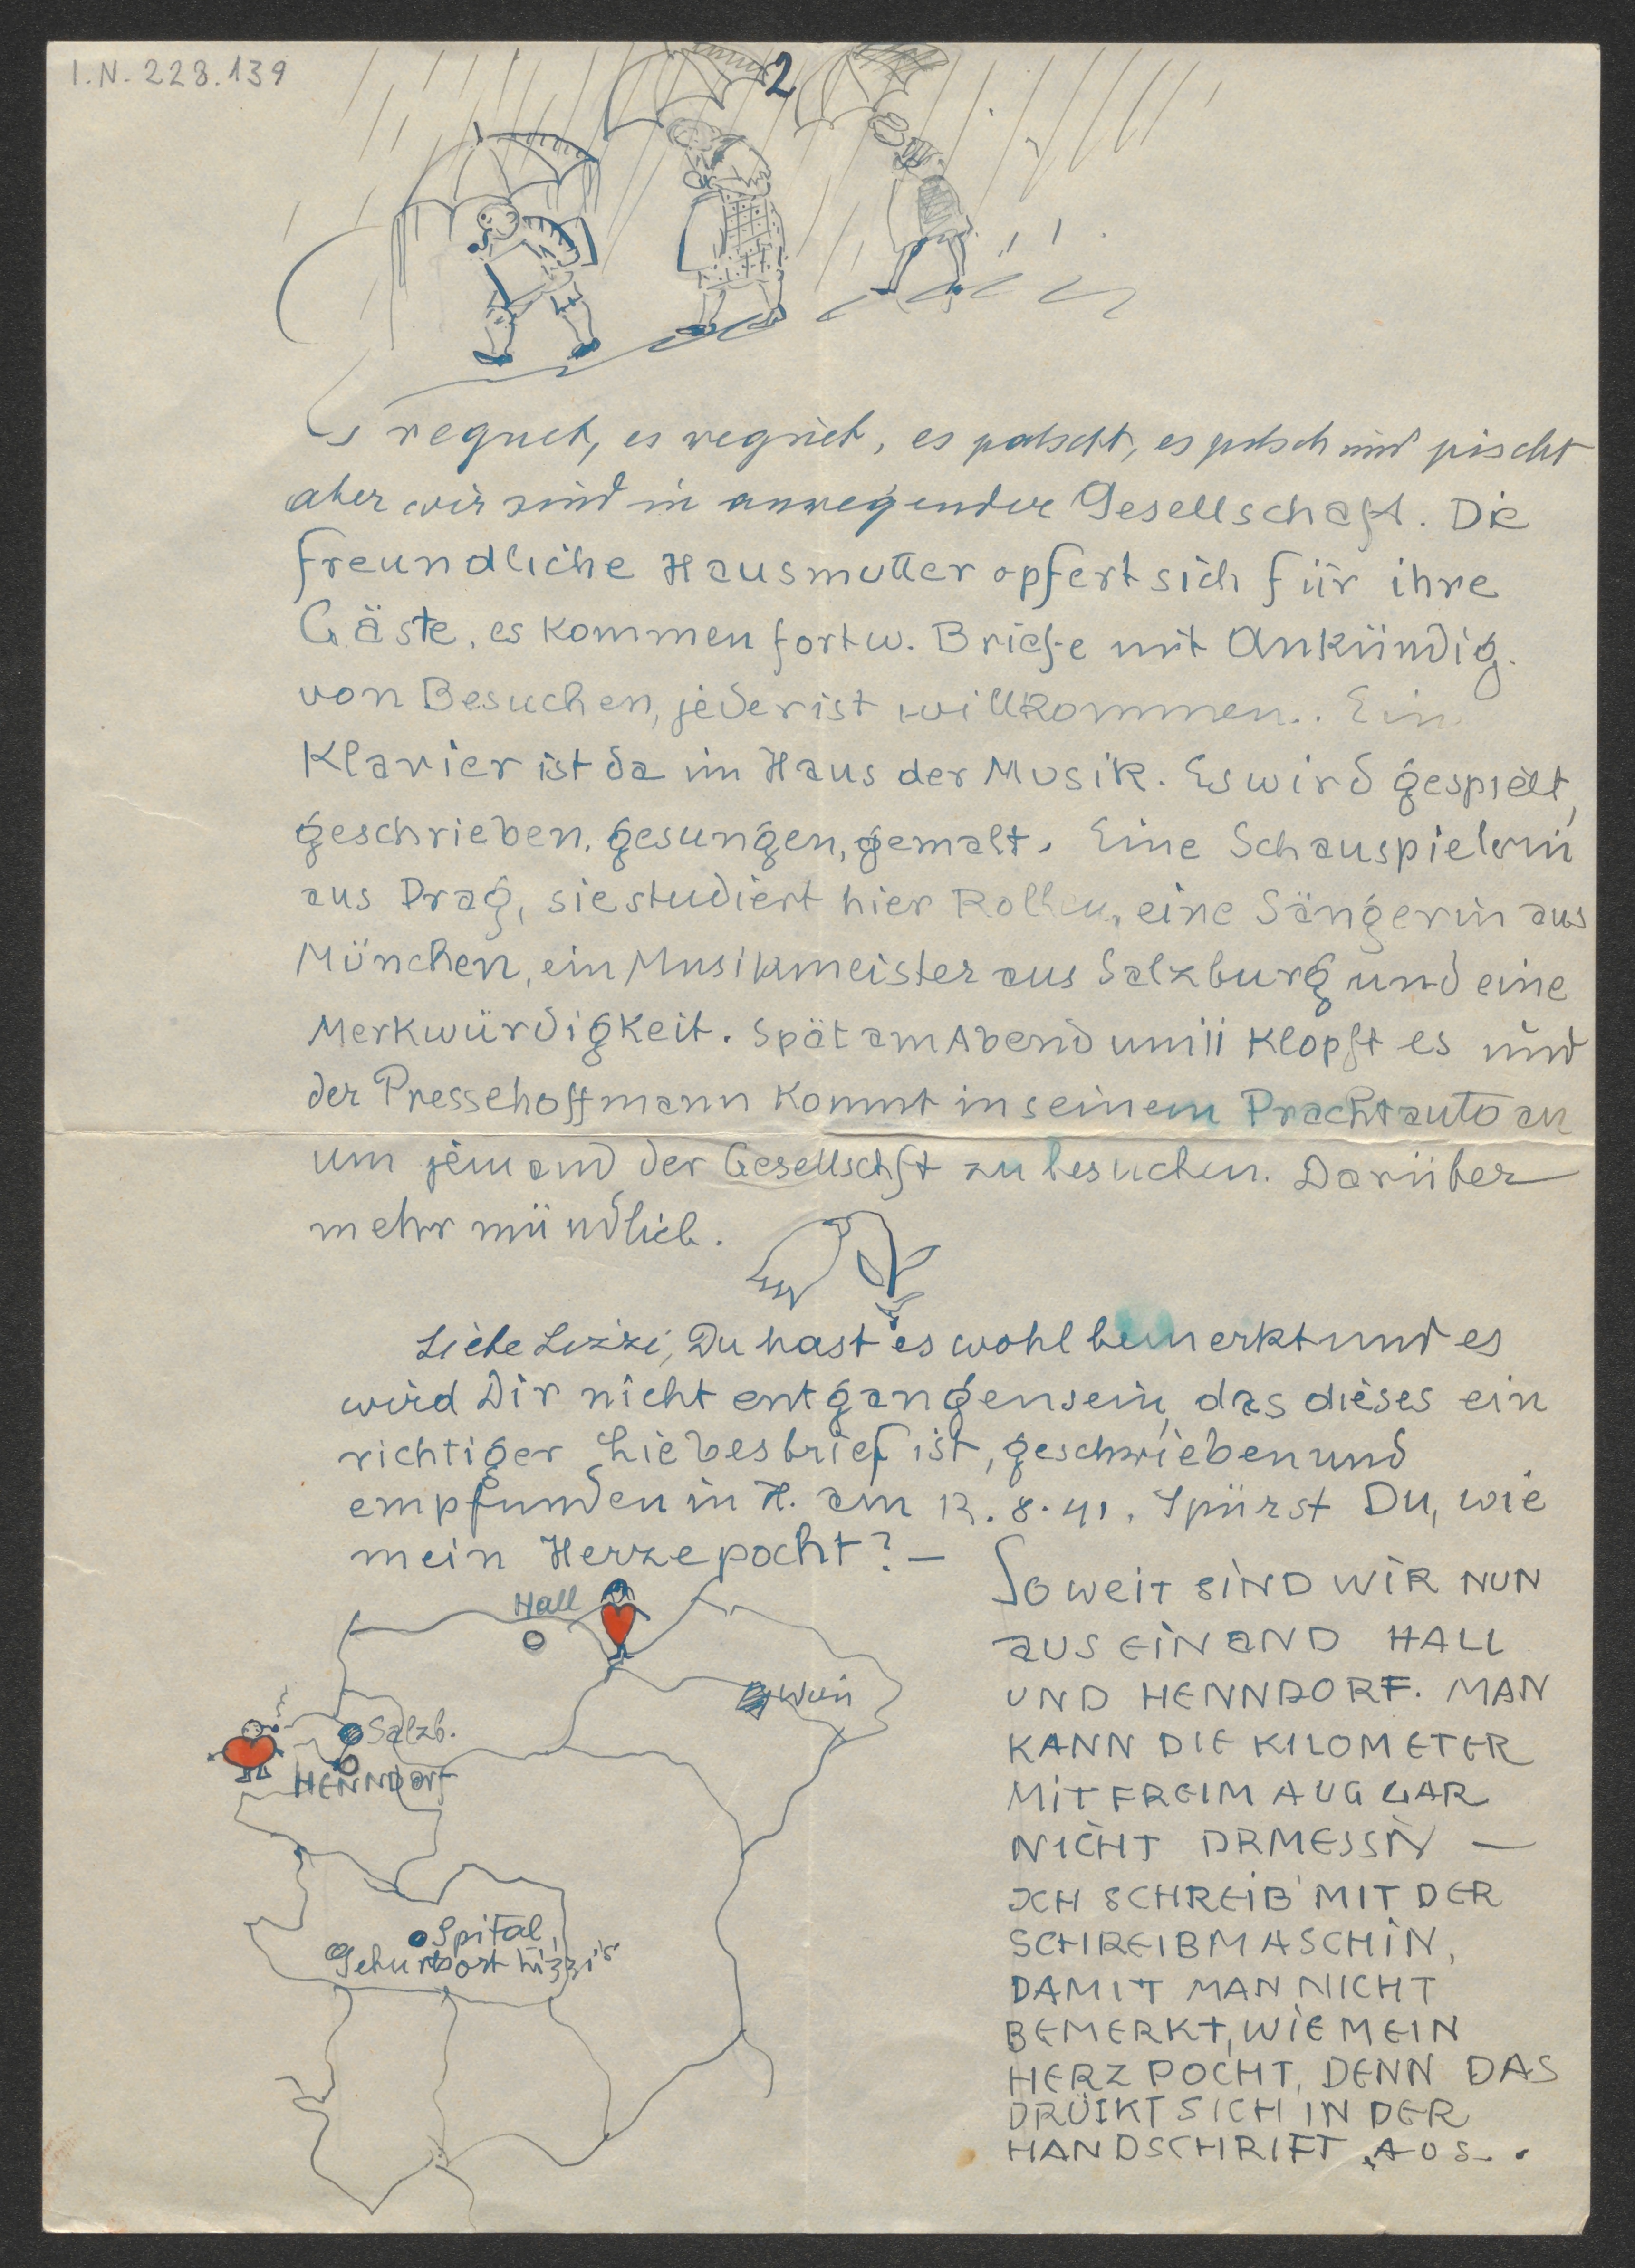 I.N. 228.139
2
Es regnet, es regnet, es patscht, es putsch und pischt
aber wir sind in anregender Gesellschaft. Die
freundliche Hausmutter opfert sich für ihre
Gäste, es kommen fortw. Briefe mit Ankündig.
von Besuchen, jeder ist willkommen.. Ein
Klavier ist da im Haus der Musik. Es wird gespielt,
geschrieben, gesungen, gemalt. Eine Schauspielerin
aus Prag, sie studiert hier Rollen, eine Sängerin aus
München, ein Musikmeister aus Salzburg und eine
Merkwürdigkeit. Spät am Abend um 11 klopft es und
der Pressehoffmann kommt in seinem Prachtauto an
um jemand der Gesellschft zu besuchen. Darüber
mehr mündlich.
Liebe Lizzi, Du hast es wohl bemerkt und es
wird Dir nicht entgangen sein, das dieses ein
richtiger Liebesbrief ist, geschrieben und
empfunden in H. am 12.8.41. Spürst Du, wie
mein Herze pocht? —
Hall
Wien
Salzb.
HENNDorf
Spital,
Geburtsort Lizzi's
SO WEIT SIND WIR NUN
AUSEINAND HALL
UND HENNDORF. MAN
KANN DIE KILOMETER
MIT FREIM AUG GAR
NICHT DRMESSN —
ICH SCHREIB' MIT DER
SCHREIBMASCHIN,
DAMIT MAN NICHT
BEMERKT, WIE MEIN
HERZ POCHT, DENN DAS
DRÜCKT SICH IN DER
HANDSCHRIFT AUS..